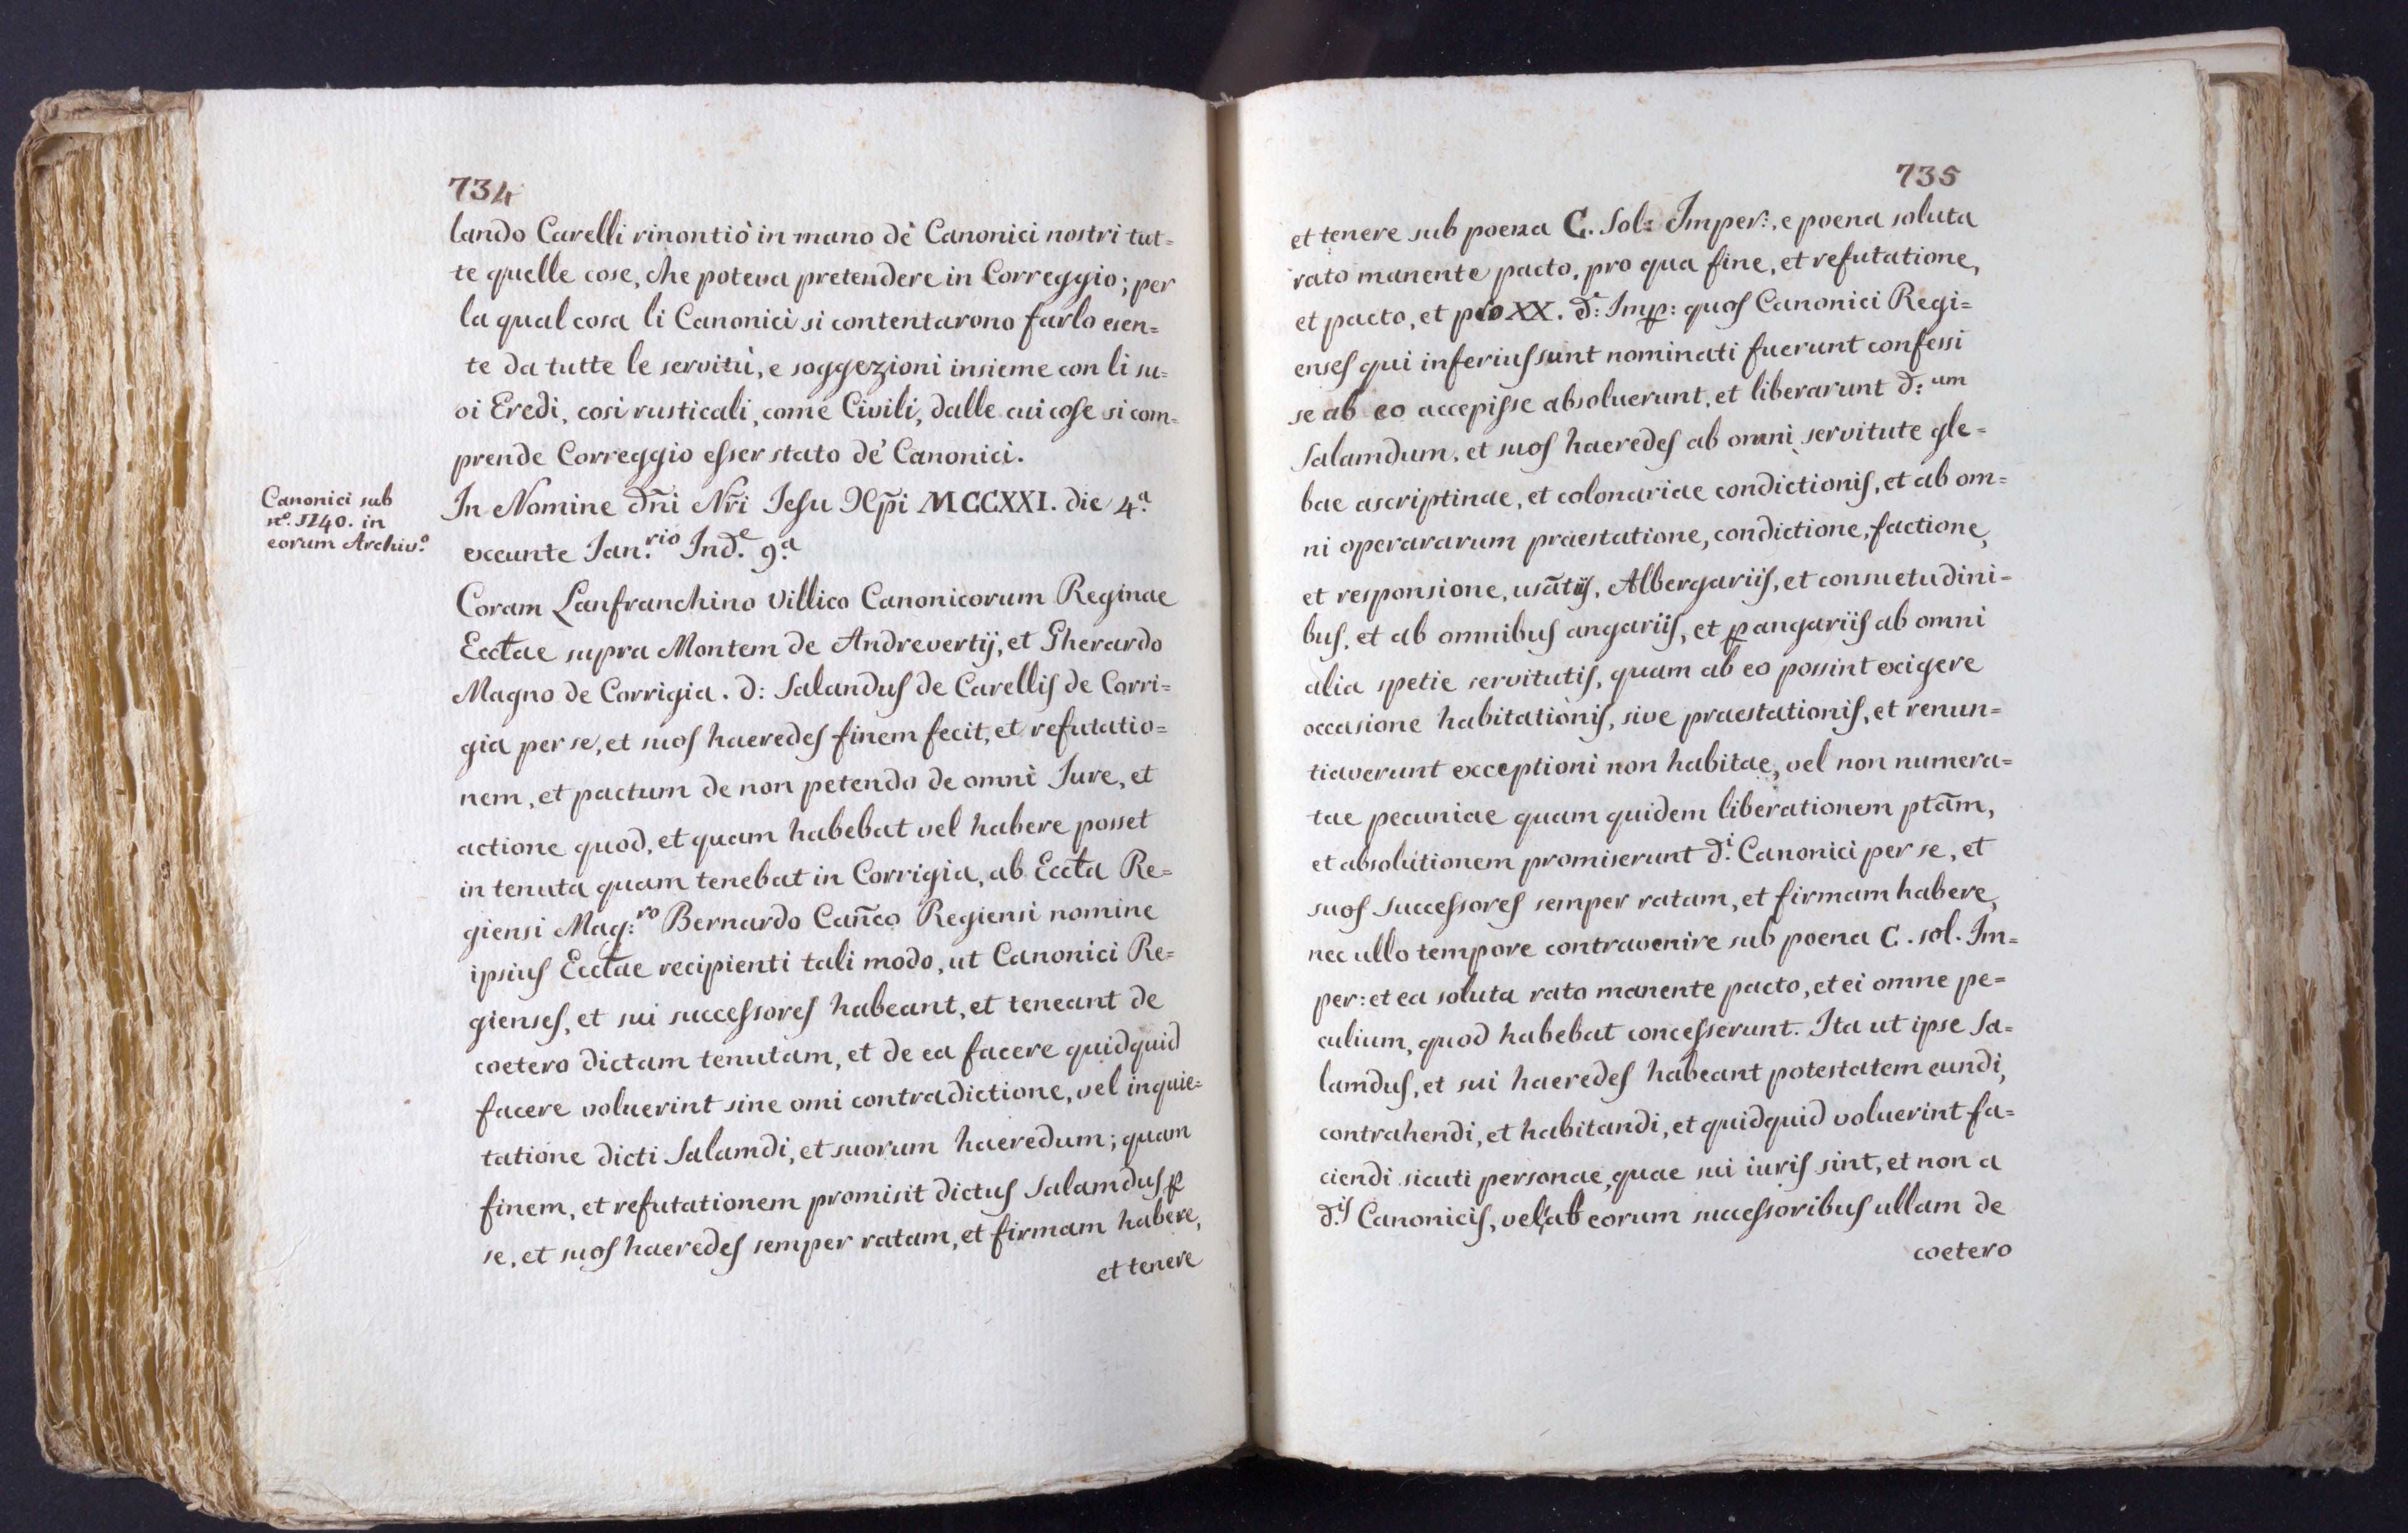 734
lando Carelli rinontiò in mano de' Canonici nostri tut=
te quelle cose, che poteva pretendere in Correggio; per
la qual cosa li Canonici si contentarono farlo esen=
te da tutte le servitù, e soggezioni insieme con li su=
oi Eredi, così rusticali, come Civili, dalle cui cose si com=
prende Correggio esser stato de' Canonici.
Canonici sub
n.º 1240. in
eorum Archiv.º
In Nomine Dñi Nr̃i Iesu Xp̃i MCCXXI. die 4.ª
exeunte Ian.rio Ind.e 9.ª
Coram Lanfranchino Villico Canonicorum Reginae
Ecclae supra Montem de Andrevertij, et Gherardo
Magno de Corrigia. D: Salandus de Carellis de Corri=
gia per se, et suos haeredes finem fecit, et refutatio=
nem, et pactum de non petendo de omni Iure, et
actione quod, et quam habebat vel habere posset
in tenuta quam tenebat in Corrigia, ab Eccla Re=
giensi Mag:ro Bernardo Can̄co Regiensi nomine
ipsius Ecclae recipienti tali modo, ut Canonici Re=
gienses, et sui successores habeant, et teneant de
coetero dictam tenutam, et de ea facere quidquid
facere voluerint sine omi contradictione, vel inquie=
tatione dicti Salamdi, et suorum haeredum; quam
finem, et refutationem promisit dictus Salamdus ꝑ
se, et suos haeredes semper ratam, et firmam habere,
et tenere
735
et tenere sub poena C. Sol: Imper:, e poena soluta
rato manente pacto, pro qua fine, et refutatione,
et pacto, et pro XX. d: Imp: quos Canonici Regi=
enses qui inferius sunt nominati fuerunt confessi
se ab eo accepisse absoluerunt, et liberarunt d:um
Salamdum, et suos haeredes ab omni servitute gle=
bae ascriptinae, et colonariae condictionis, et ab om=
ni operararum praestatione, condictione, factione,
et responsione, usãtijs, Albergariis, et consuetudini=
bus, et ab omnibus angariis, et ꝑangariis ab omni
alia spetie servitutis, quam ab eo possint exigere
occasione habitationis, sive praestationis, et renun=
tiaverunt exceptioni non habitae, vel non numera=
tae pecuniae quam quidem liberationem ptãm,
et absolutionem promiserunt d.i Canonici per se, et
suos Successores semper ratam, et firmam habere,
nec ullo tempore contravenire sub poena C. sol. Im=
per: et ea soluta rato manente pacto, et ei omne pe=
culium, quod habebat concesserunt. Ita ut ipse Sa=
lamdus, et sui haeredes habeant potestatem eundi,
contrahendi, et habitandi, et quidquid voluerint fa=
ciendi sicuti personae, quae sui iuris sint, et non a
d.is Canonicis, vel ab eorum successoribus ullam de
coetero